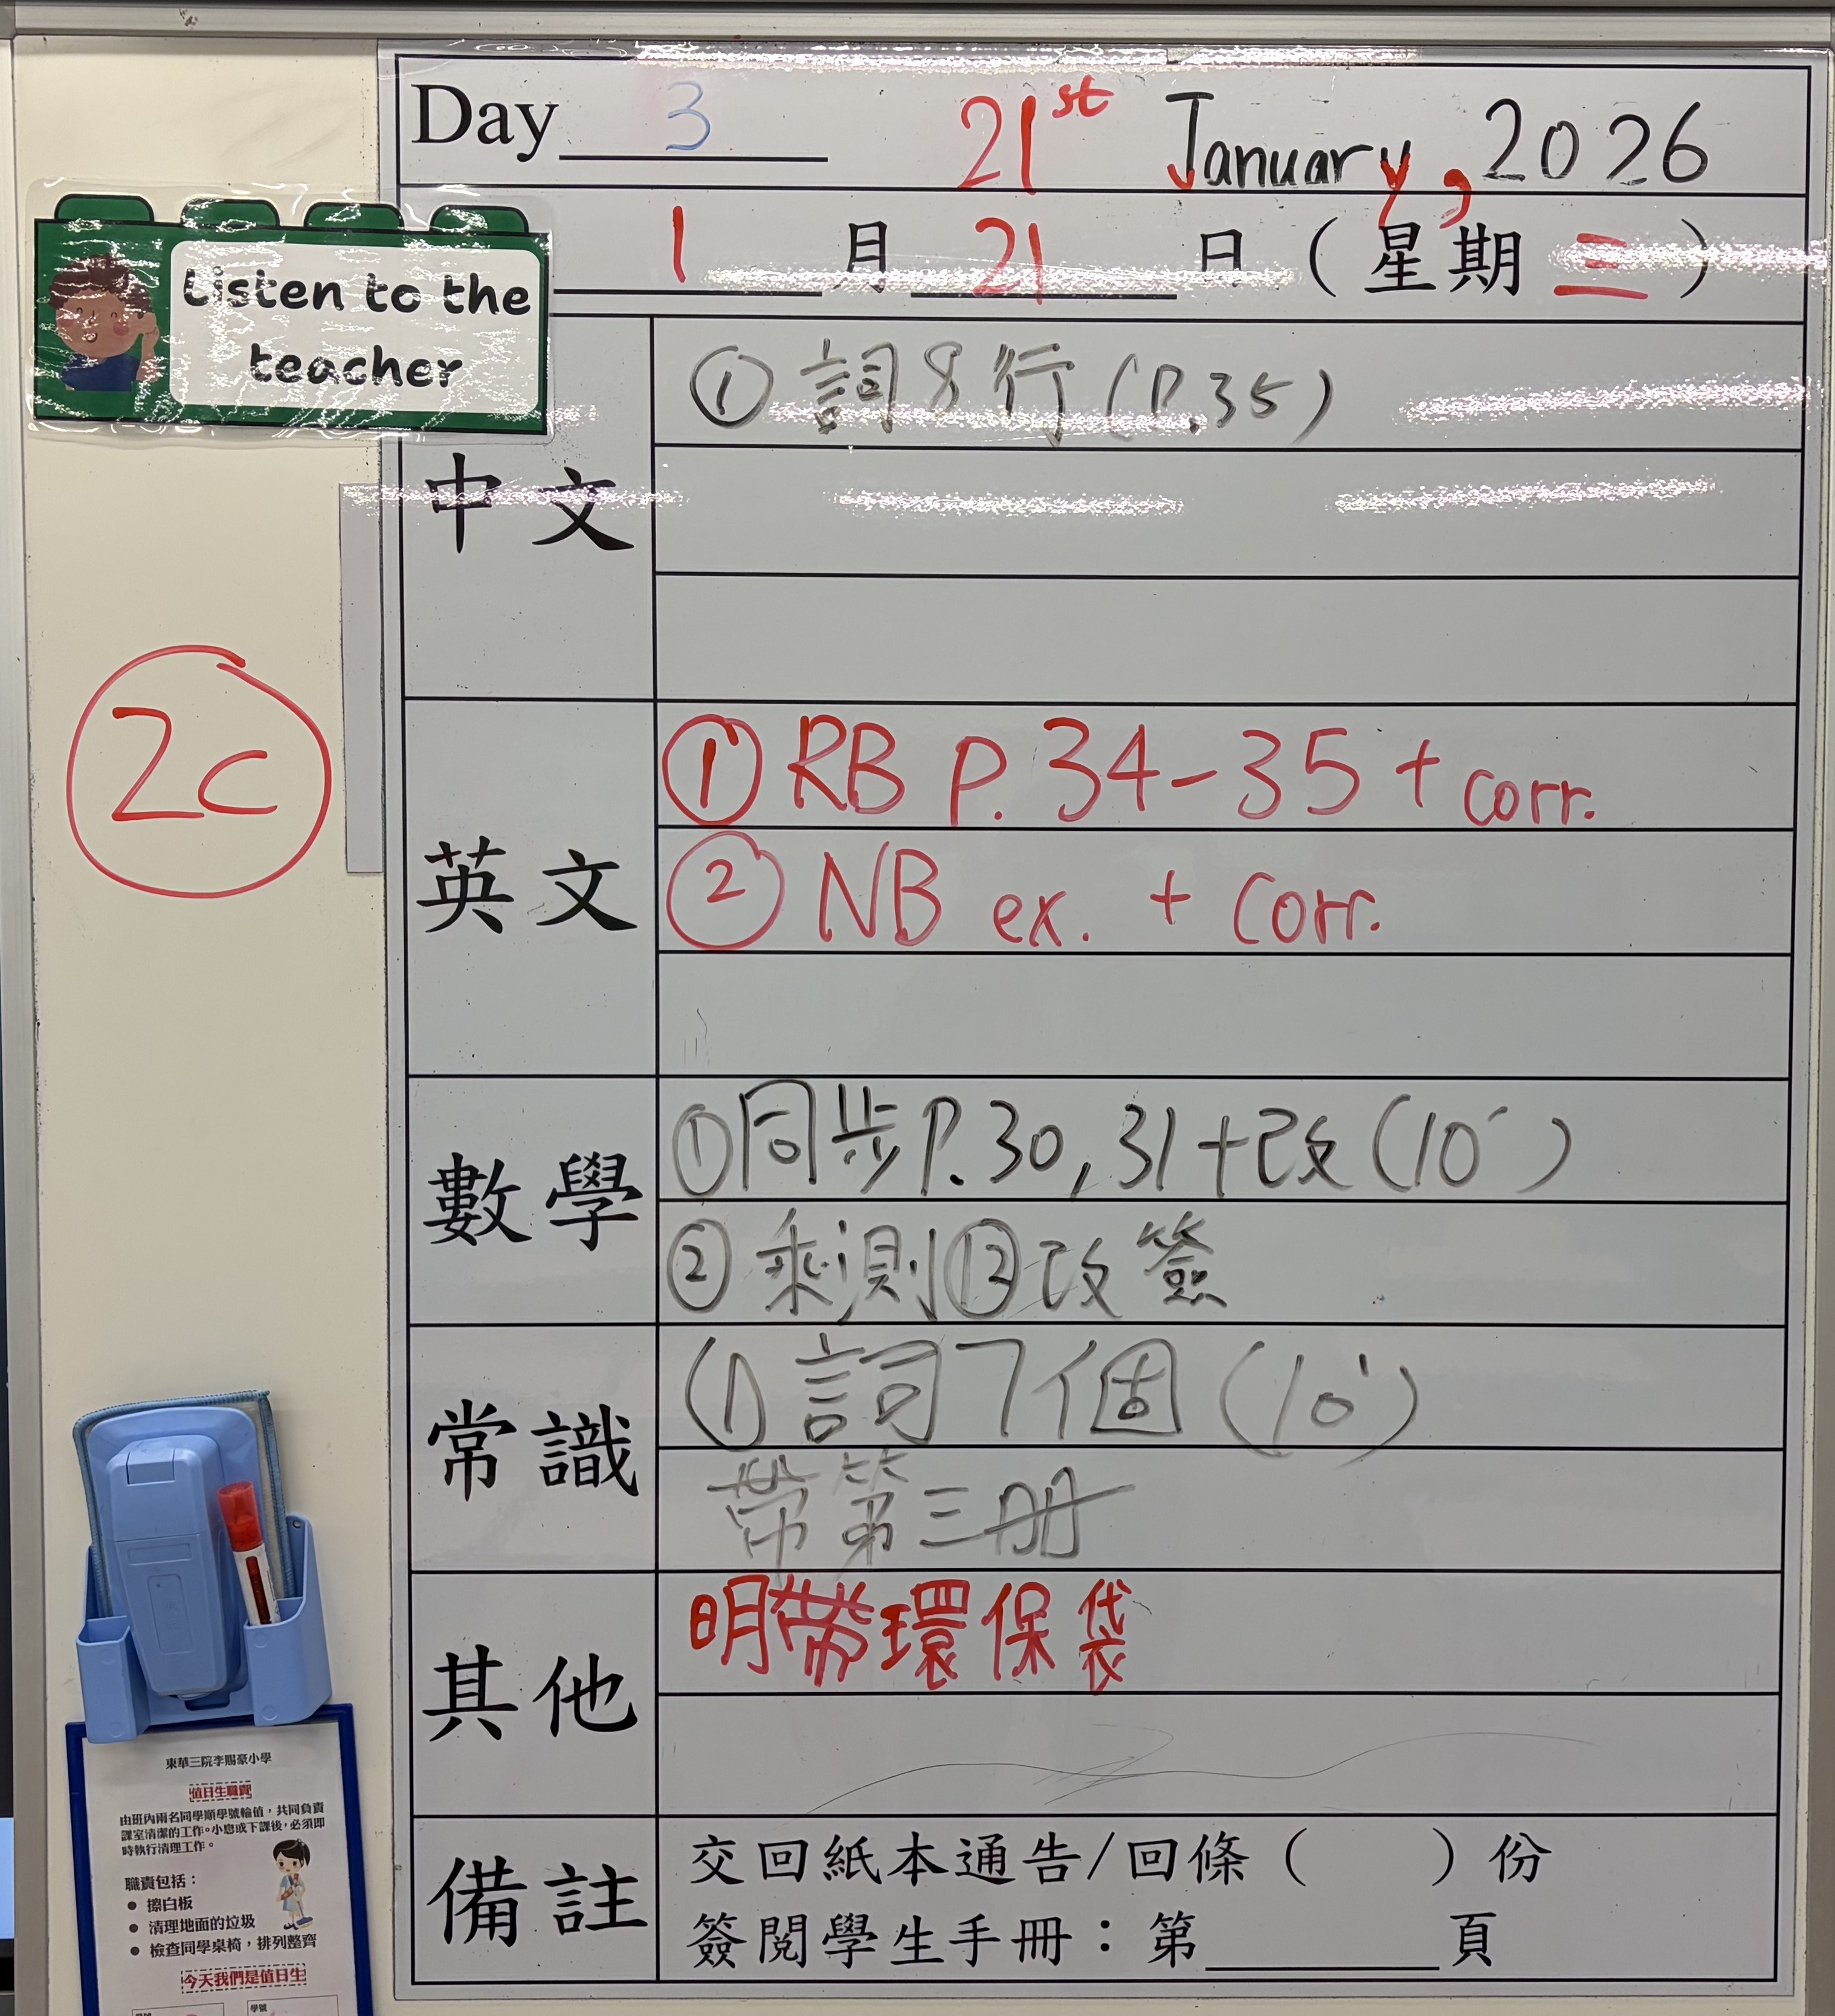 Day 3 21st January, 2026
1 月 21 日 ( 星期 三 )
Listen to the
teacher
中文
① 詞 8 行 (P.35)
2c
英文
① RB P. 34-35 + corr.
② NB ex. + corr.
數學
① 同步 P.30, 31 + 改 (10')
② 乘測 ⑫ 改 簽
常識
① 詞 7 個 (10')
帶第三冊
其他
明帶環保袋
備註
交回紙本通告/回條 ( ) 份
簽閱學生手冊：第 頁
東華三院李賜豪小學
值日生職責
由班內兩名同學順學號輪值，共同負責
課室清潔的工作。小息或下課後，必須即
時執行清理工作。
職責包括：
● 擦白板
● 清理地面的垃圾
● 檢查同學桌椅，排列整齊
今天我們是值日生
學號